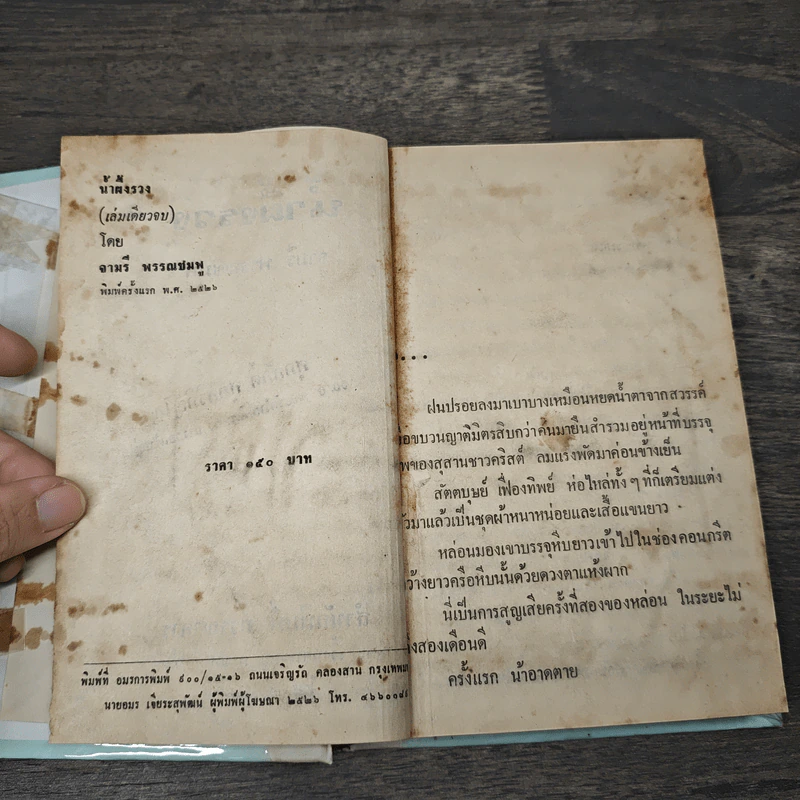 น้ำผึ้งรวง
(เล่มเดียวจบ)
โดย
จามรี พรรณชมพู
พิมพ์ครั้งแรก พ.ศ. ๒๕๒๖
ราคา ๑๕๐ บาท
พิมพ์ที่ อมรการพิมพ์ ๙๐๐/๑๕-๑๖ ถนนเจริญรัถ คลองสาน กรุงเทพม
นายอมร เจียระสุพัฒน์ ผู้พิมพ์ผู้โฆษณา ๒๕๒๖ โทร.
...
ฝนปรอยลงมาเบาบางเหมือนหยดน้ำตาจากสวรรค์
ขบวนญาติมิตรสิบกว่าคนมายืนสำรวมอยู่หน้าที่บรรจุ
พของสุสานชาวคริสต์ ลมแรงพัดมาค่อนข้างเย็น
สัตตบุษย์ เฟื่องทิพย์ ห่อไหล่ทั้ง ๆ ที่ก็เตรียมแต่ง
ัวมาแล้วเป็นชุดผ้าหนาหน่อยและเสื้อแขนยาว
หล่อนมองเขาบรรจุหีบยาวเข้าไปในช่องคอนกรีต
ว้างยาวครือหีบนั้นด้วยดวงตาแห้งผาก
นี่เป็นการสูญเสียครั้งที่สองของหล่อน ในระยะไม่
ึงสองเดือนดี
ครั้งแรก น้าอาดตาย